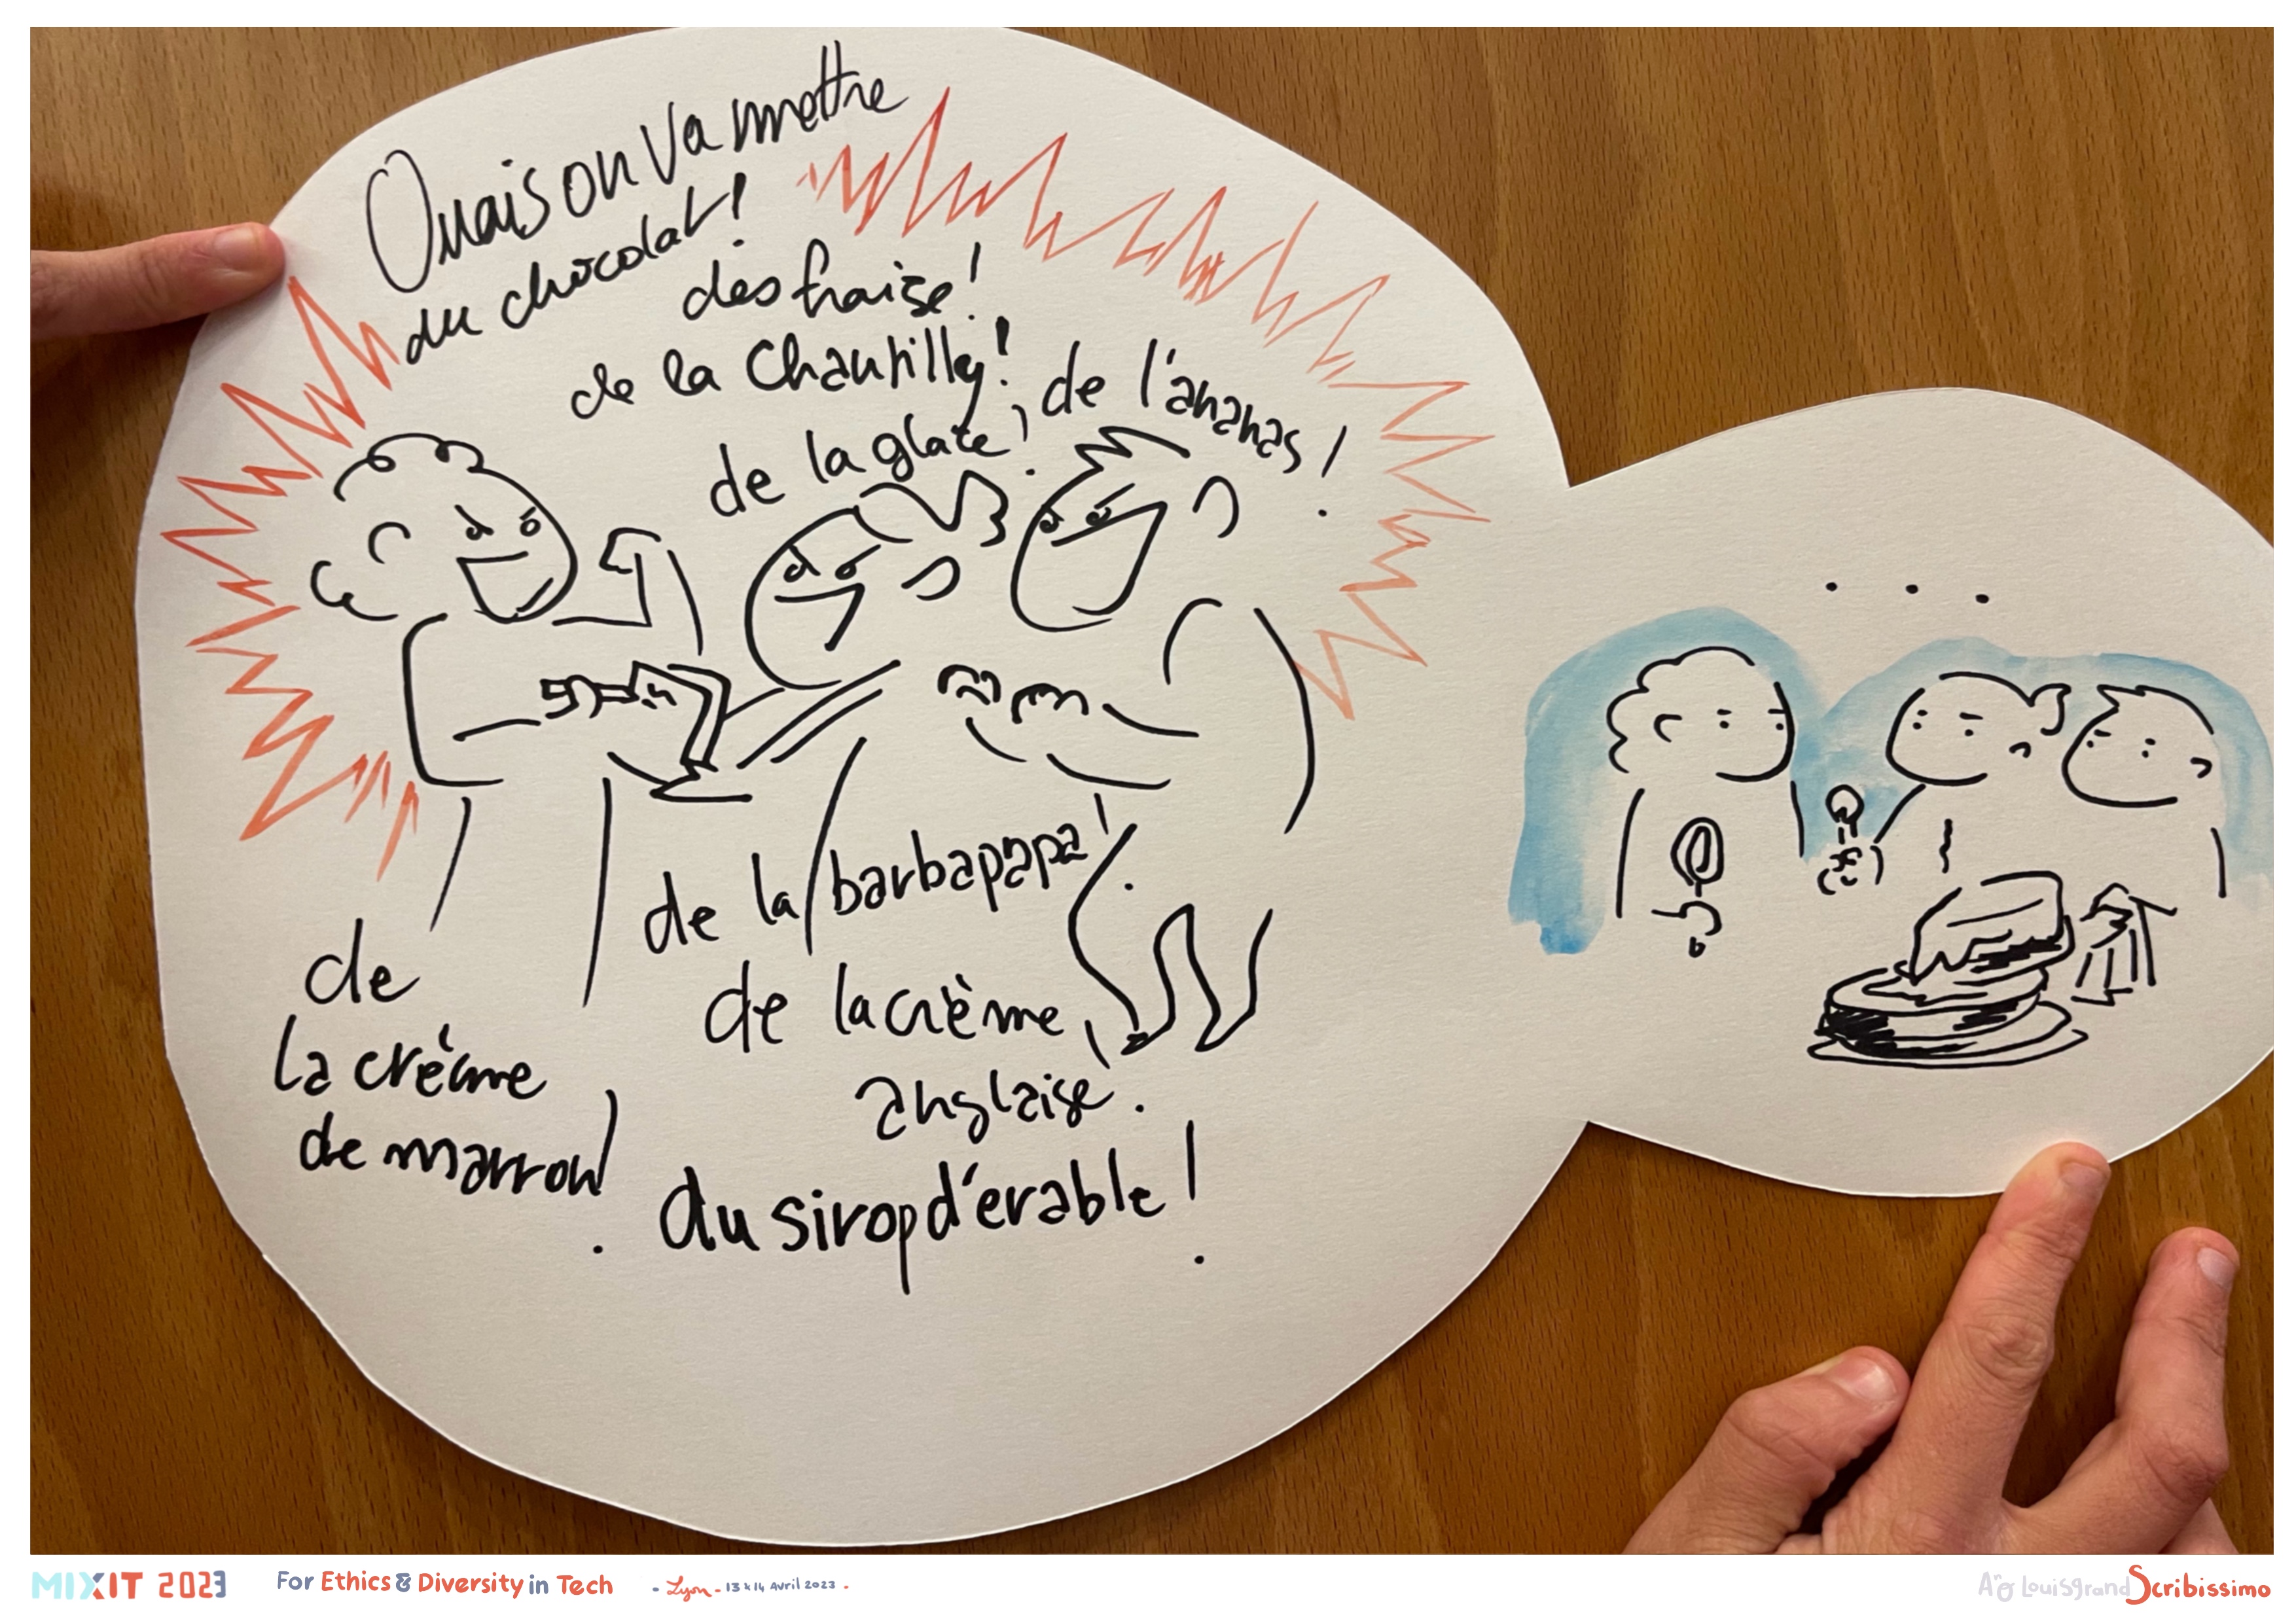 Ouais on va mettre
du chocolat!
des fraise!
de la Chantilly!
de la glace!
de l'ananas!
de la barbapapa!
de
la crème
de marron!
de la crème
anglaise!
du sirop d'erable!
. . .
MIXIT 2023
For Ethics & Diversity in Tech
- Lyon - 13 & 14 Avril 2023 -
Louisgrand Scribissimo